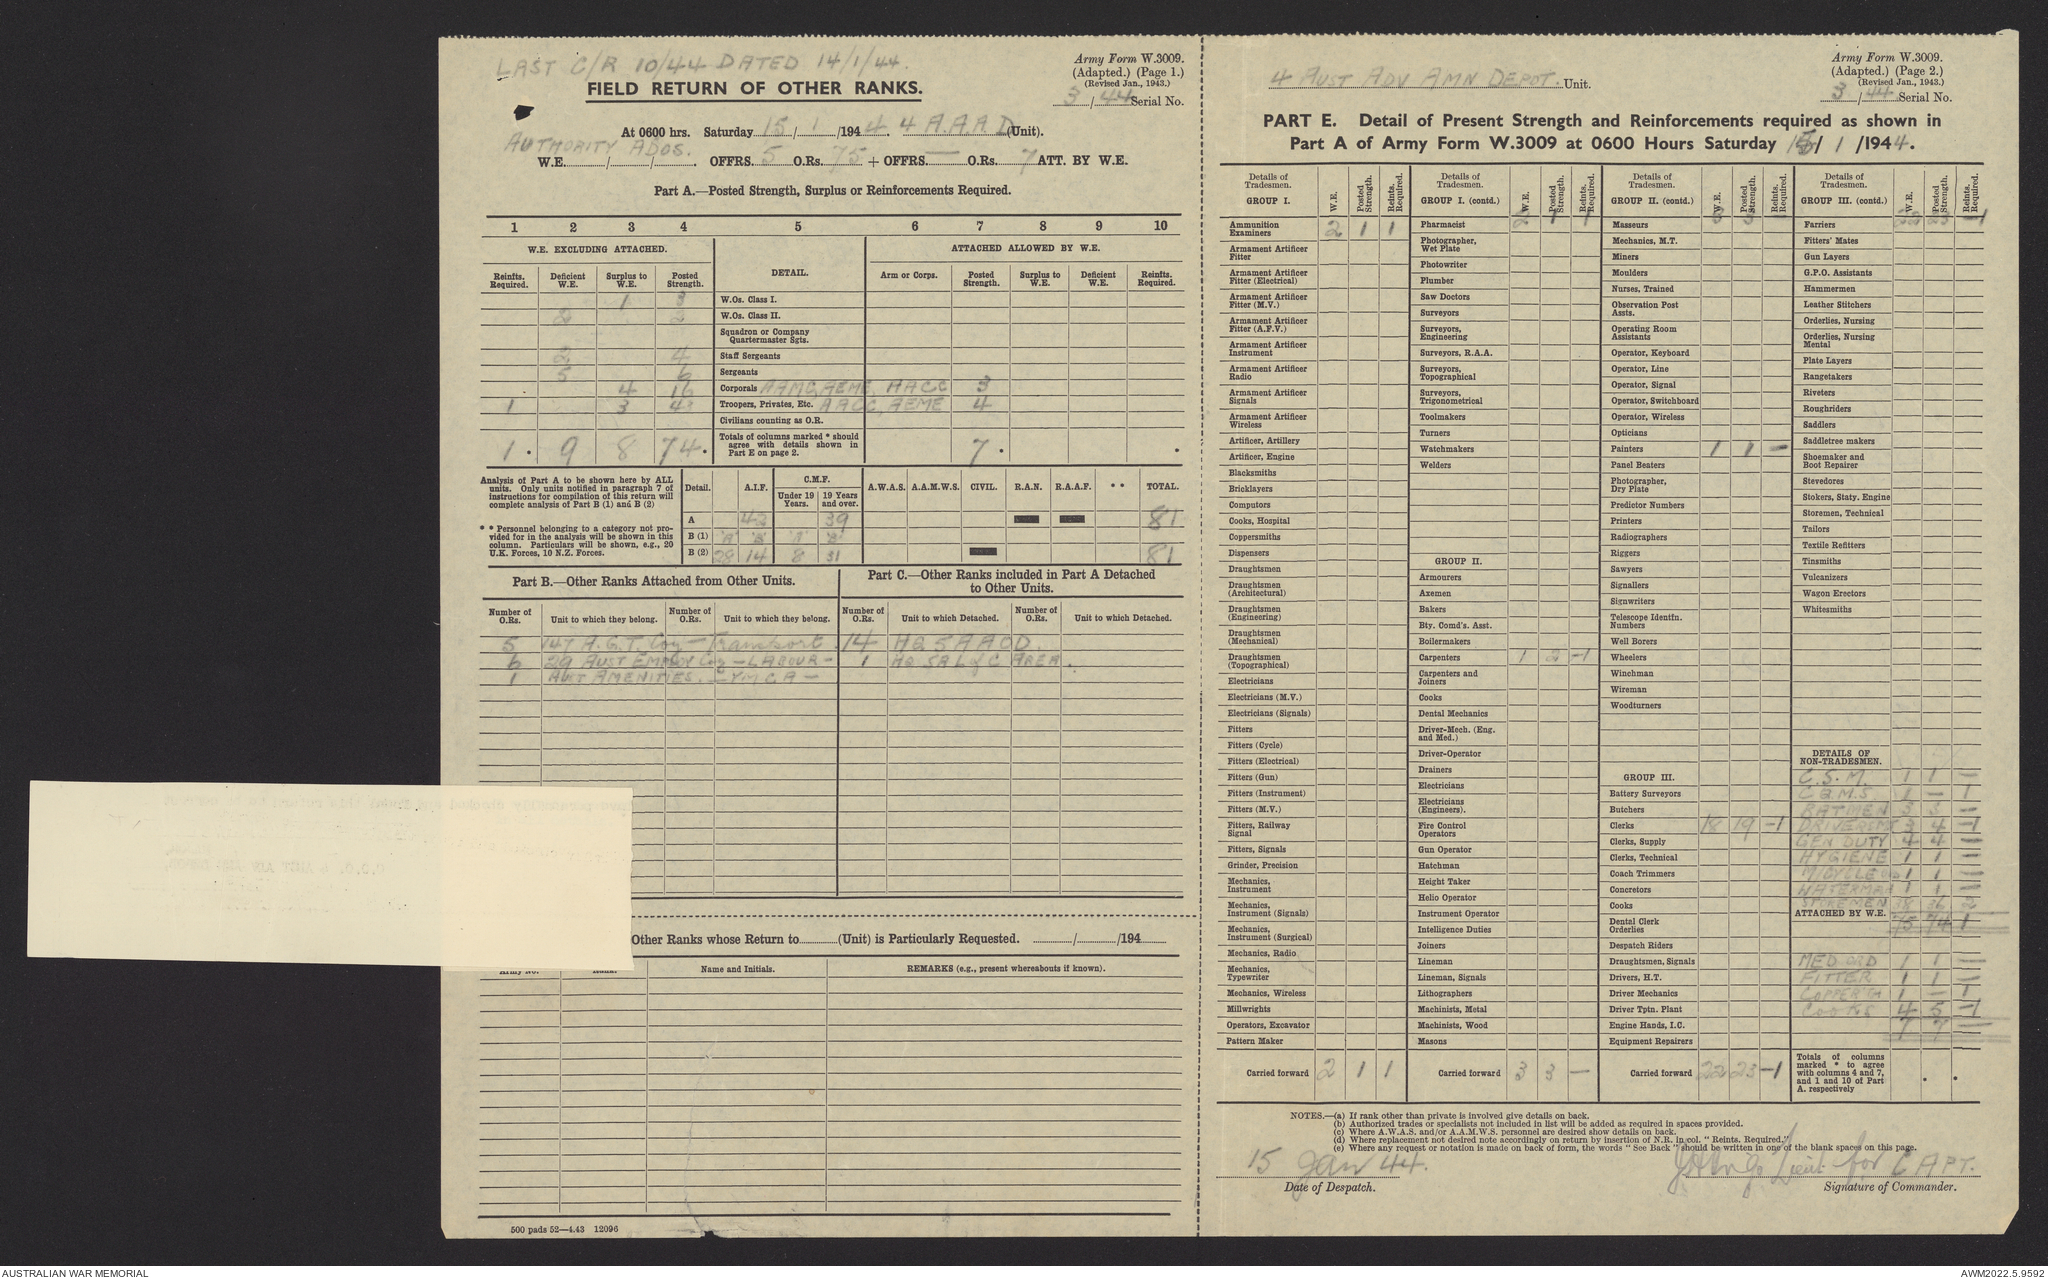 LAST C/R 10/44 DATED 14/1/44.
Army Form W.3009.
(Adapted.) (Page 1.)
(Revised Jan., 1943.)
3 / 44 Serial No.
FIELD RETURN OF OTHER RANKS.
At 0600 hrs. Saturday 15 / 1 /194 4. 4 A.A.A.D (Unit).
AUTHORITY ADOS.
W.E. / / . OFFRS. 5 O.Rs. 75 + OFFRS. — O.Rs. 7 ATT. BY W.E.
Part A.—Posted Strength, Surplus or Reinforcements Required.
1 2 3 4 5 6 7 8 9 10
W.E. EXCLUDING ATTACHED. DETAIL. ATTACHED ALLOWED BY W.E.
Reinfts. Required. Deficient W.E. Surplus to W.E. Posted Strength. Arm or Corps. Posted Strength. Surplus to W.E. Deficient W.E. Reinfts. Required.
1 3 W.Os. Class I.
2 2 W.Os. Class II.
Squadron or Company Quartermaster Sgts.
2 4 Staff Sergeants
5 6 Sergeants
4 16 Corporals AAMC, AEME, AACC 3
1 3 43 Troopers, Privates, Etc. AACC, AEME 4
Civilians counting as O.R.
1 . 9 8 74 . Totals of columns marked * should agree with details shown in Part E on page 2. 7 . .
Analysis of Part A to be shown here by ALL units. Only units notified in paragraph 7 of instructions for compilation of this return will complete analysis of Part B (1) and B (2)
* * Personnel belonging to a category not provided for in the analysis will be shown in this column. Particulars will be shown, e.g., 20 U.K. Forces, 10 N.Z. Forces.
Detail. A.I.F. C.M.F. Under 19 Years. 19 Years and over. A.W.A.S. A.A.M.W.S. CIVIL. R.A.N. R.A.A.F. * * TOTAL.
A 42 39 81
B (1) "A" "B" "A" "B"
B (2) 28 14 8 31 81
Part B.—Other Ranks Attached from Other Units.
Part C.—Other Ranks included in Part A Detached to Other Units.
Number of O.Rs. Unit to which they belong. Number of O.Rs. Unit to which they belong. Number of O.Rs. Unit to which Detached. Number of O.Rs. Unit to which Detached.
5 147 A.G.T. Coy — Transport. 14 HQ 5 AAOD.
6 29 AUST EMPLOY Coy — LABOUR — 1 HQ SR L of C AREA.
1 AUST AMENITIES. — YMCA —
Other Ranks whose Return to (Unit) is Particularly Requested. / /194
Army No. Name and Initials. REMARKS (e.g., present whereabouts if known).
500 pads 52—4.43 12096
4 AUST ADV AMN DEPOT. Unit.
Army Form W.3009.
(Adapted.) (Page 2.)
(Revised Jan., 1943.)
3 / 44 Serial No.
PART E. Detail of Present Strength and Reinforcements required as shown in
Part A of Army Form W.3009 at 0600 Hours Saturday 15/ 1 /1944.
Details of Tradesmen. W.E. Posted Strength. Reints. Required.
GROUP I.
Ammunition Examiners 2 1 1
Armament Artificer Fitter
Armament Artificer Fitter (Electrical)
Armament Artificer Fitter (M.V.)
Armament Artificer Fitter (A.F.V.)
Armament Artificer Instrument
Armament Artificer Radio
Armament Artificer Signals
Armament Artificer Wireless
Artificer, Artillery
Artificer, Engine
Blacksmiths
Bricklayers
Computors
Cooks, Hospital
Coppersmiths
Dispensers
Draughtsmen
Draughtsmen (Architectural)
Draughtsmen (Engineering)
Draughtsmen (Mechanical)
Draughtsmen (Topographical)
Electricians
Electricians (M.V.)
Electricians (Signals)
Fitters
Fitters (Cycle)
Fitters (Electrical)
Fitters (Gun)
Fitters (Instrument)
Fitters (M.V.)
Fitters, Railway Signal
Fitters, Signals
Grinder, Precision
Mechanics, Instrument
Mechanics, Instrument (Signals)
Mechanics, Instrument (Surgical)
Mechanics, Radio
Mechanics, Typewriter
Mechanics, Wireless
Millwrights
Operators, Excavator
Pattern Maker
Carried forward 2 1 1
Details of Tradesmen. W.E. Posted Strength. Reints. Required.
GROUP I. (contd.)
Pharmacist 2 1 1
Photographer, Wet Plate
Photowriter
Plumber
Saw Doctors
Surveyors
Surveyors, Engineering
Surveyors, R.A.A.
Surveyors, Topographical
Surveyors, Trigonometrical
Toolmakers
Turners
Watchmakers
Welders
GROUP II.
Armourers
Axemen
Bakers
Bty. Comd's. Asst.
Boilermakers
Carpenters 1 2 -1
Carpenters and Joiners
Cooks
Dental Mechanics
Driver-Mech. (Eng. and Med.)
Driver-Operator
Drainers
Electricians
Electricians (Engineers).
Fire Control Operators
Gun Operator
Hatchman
Height Taker
Helio Operator
Instrument Operator
Intelligence Duties
Joiners
Lineman
Lineman, Signals
Lithographers
Machinists, Metal
Machinists, Wood
Masons
Carried forward 3 3 —
Details of Tradesmen. W.E. Posted Strength. Reints. Required.
GROUP II. (contd.)
Masseurs 3 3 —
Mechanics, M.T.
Miners
Moulders
Nurses, Trained
Observation Post Assts.
Operating Room Assistants
Operator, Keyboard
Operator, Line
Operator, Signal
Operator, Switchboard
Operator, Wireless
Opticians
Painters 1 1 —
Panel Beaters
Photographer, Dry Plate
Predictor Numbers
Printers
Radiographers
Riggers
Sawyers
Signallers
Signwriters
Telescope Identfn. Numbers
Well Borers
Wheelers
Winchman
Wireman
Woodturners
GROUP III.
Battery Surveyors
Butchers
Clerks 18 19 -1
Clerks, Supply
Clerks, Technical
Coach Trimmers
Concretors
Cooks
Dental Clerk Orderlies
Despatch Riders
Draughtsmen, Signals
Drivers, H.T.
Driver Mechanics
Driver Tptn. Plant
Engine Hands, I.C.
Equipment Repairers
Carried forward 22 23 -1
Details of Tradesmen. W.E. Posted Strength. Reints. Required.
GROUP III. (contd.)
Farriers 22 23 -1
Fitters' Mates
Gun Layers
G.P.O. Assistants
Hammermen
Leather Stitchers
Orderlies, Nursing
Orderlies, Nursing Mental
Plate Layers
Rangetakers
Riveters
Roughriders
Saddlers
Saddletree makers
Shoemaker and Boot Repairer
Stevedores
Stokers, Staty. Engine
Storemen, Technical
Tailors
Textile Refitters
Tinsmiths
Vulcanizers
Wagon Erectors
Whitesmiths
DETAILS OF NON-TRADESMEN.
C.S.M. 1 1 —
CQMS 1 — 1
BATMEN 3 3 —
DRIVERS MT 3 4 -1
GEN DUTY 4 4 —
HYGIENE 1 1 —
M/CYCLE 1 1 —
WATERMAN 1 1 —
STOREMEN 38 36 2
ATTACHED BY W.E. 75 74 1
MED ORD 1 1 —
FITTER 1 1 —
COPPER 1 — 1
COOKS 4 5 -1
7 7 —
Totals of columns marked * to agree with columns 4 and 7, and 1 and 10 of Part A. respectively . .
NOTES.—(a) If rank other than private is involved give details on back.
(b) Authorized trades or specialists not included in list will be added as required in spaces provided.
(c) Where A.W.A.S. and/or A.A.M.W.S. personnel are desired show details on back.
(d) Where replacement not desired note accordingly on return by insertion of N.R. in col. " Reints. Required."
(e) Where any request or notation is made on back of form, the words " See Back " should be written in one of the blank spaces on this page.
15 Jan 44.
Lieut for CAPT.
Date of Despatch.
Signature of Commander.
AUSTRALIAN WAR MEMORIAL
AWM2022.5.9592